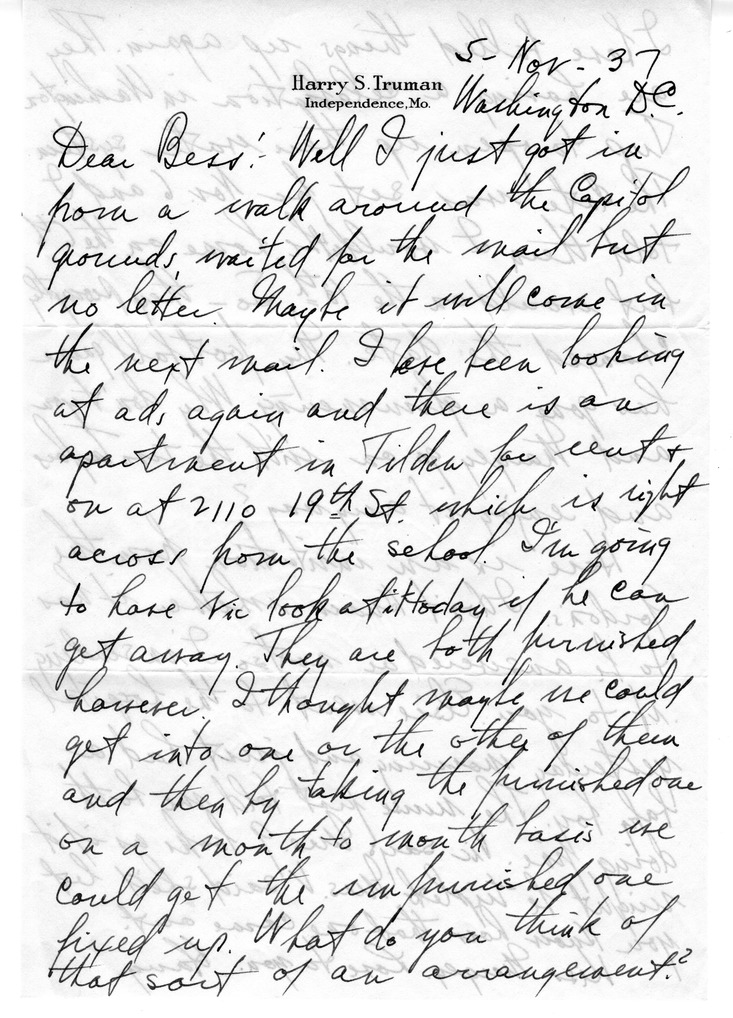 5- Nov- 37
Harry S. Truman
Independence, Mo.
Washington D.C.
Dear Bess:- Well I just got in
from a walk around the Capitol
grounds, waited for the mail but
no letter. Maybe it will come in
the next mail. I have been looking
at ads again and there is an
apartment in Tilden for rent &
on at 2110 19th St. which is right
across from the school. I'm going
to have Vic look at it today if he can
get away. They are both furnished
however. I thought maybe we could
get into one or the other of them
and then by taking the furnished one
on a month to month basis we
could get the unfurnished one
fixed up. What do you think of
that sort of an arrangement?